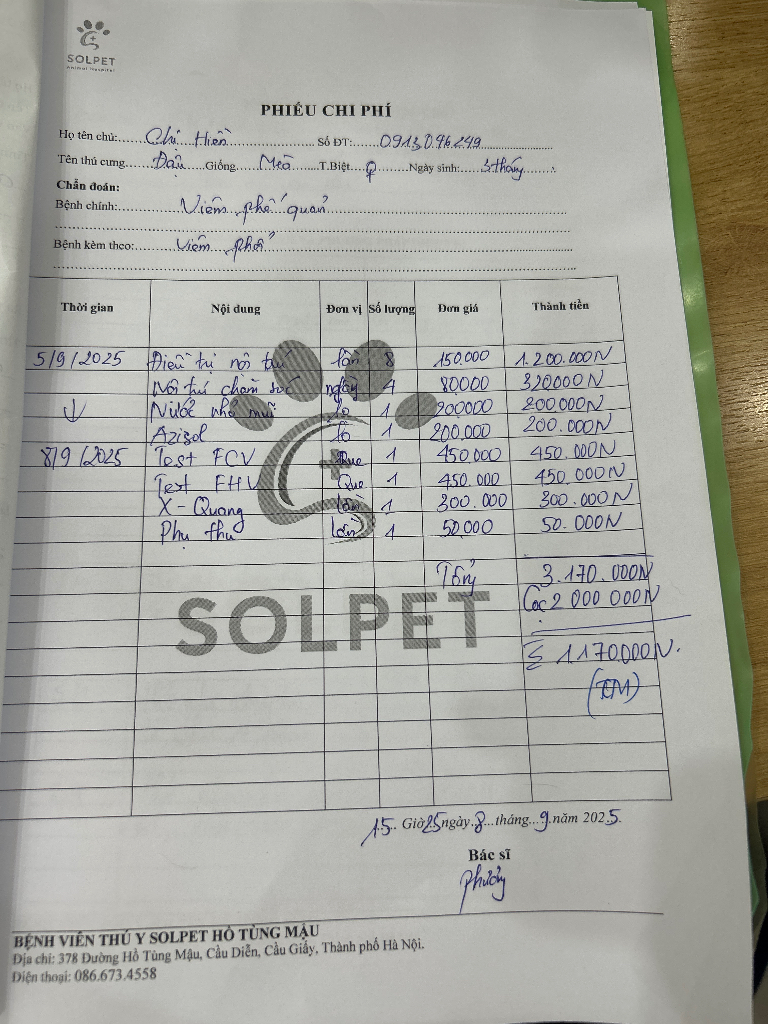 SOLPET
Animal Hospital
PHIẾU CHI PHÍ
Họ tên chủ: Chị Hiền Số ĐT: 0913.096.249
Tên thú cưng Đậu Giống Mèo T.Biệt ♀ Ngày sinh: 3 tháng
Chẩn đoán:
Bệnh chính: Viêm phế quản
Bệnh kèm theo: Viêm phổi
Thời gian Nội dung Đơn vị Số lượng Đơn giá Thành tiền
5/9/2025 Điều trị nội trú lần 8 150.000 1.200.000N
Nội trú chăm sóc ngày 4 80000 320000N
↓ Nước nhỏ mũi lọ 1 200000 200.000N
Azisol lọ 1 200.000 200.000N
8/9/2025 Test FCV Que 1 450.000 450.000N
Test FHV Que 1 450.000 450.000N
X-Quang lần 1 300.000 300.000N
Phụ thu lần 1 50.000 50.000N
Tổng 3.170.000N
Cọc 2 000 000N
SOLPET
≤ 1170.000N.
(TM)
15 Giờ 25 ngày 8 tháng 9 năm 2025
Bác sĩ
Phương
BỆNH VIỆN THÚ Y SOLPET HỒ TÙNG MẬU
Địa chỉ: 378 Đường Hồ Tùng Mậu, Cầu Diễn, Cầu Giấy, Thành phố Hà Nội.
Điện thoại: 086.673.4558